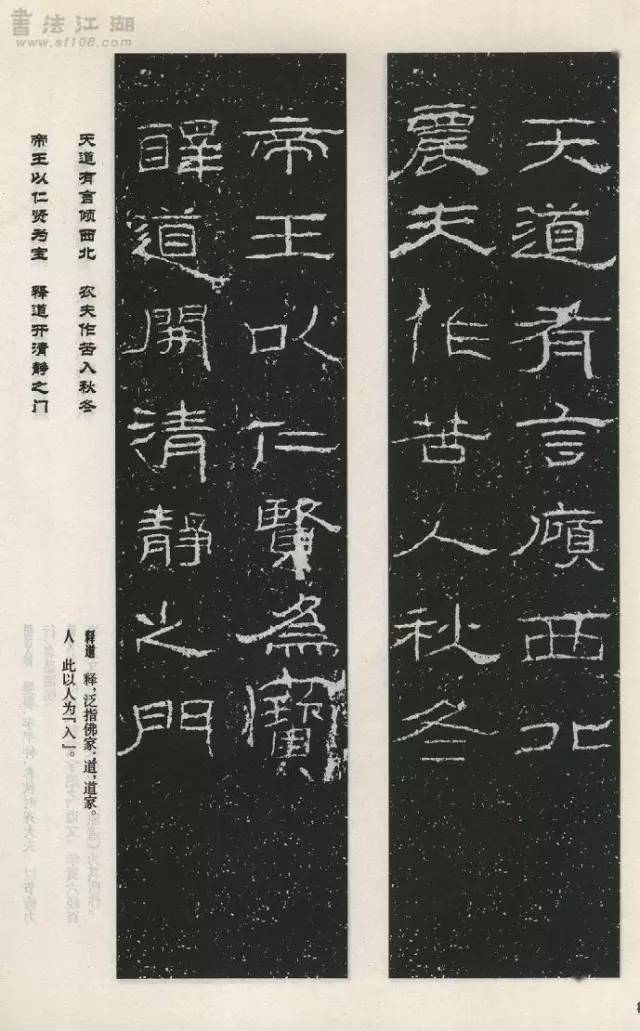 書法江湖
www.sf108.com
天道有言廎西北
農夫作苦人秋冬
帝王以仁賢為寶
釋道開清靜之門
天道有言倾西北　农夫作苦入秋冬
帝王以仁贤为宝　释道开清静之门
释道　释，泛指佛家；道，道家。
人　此以人为“入”。